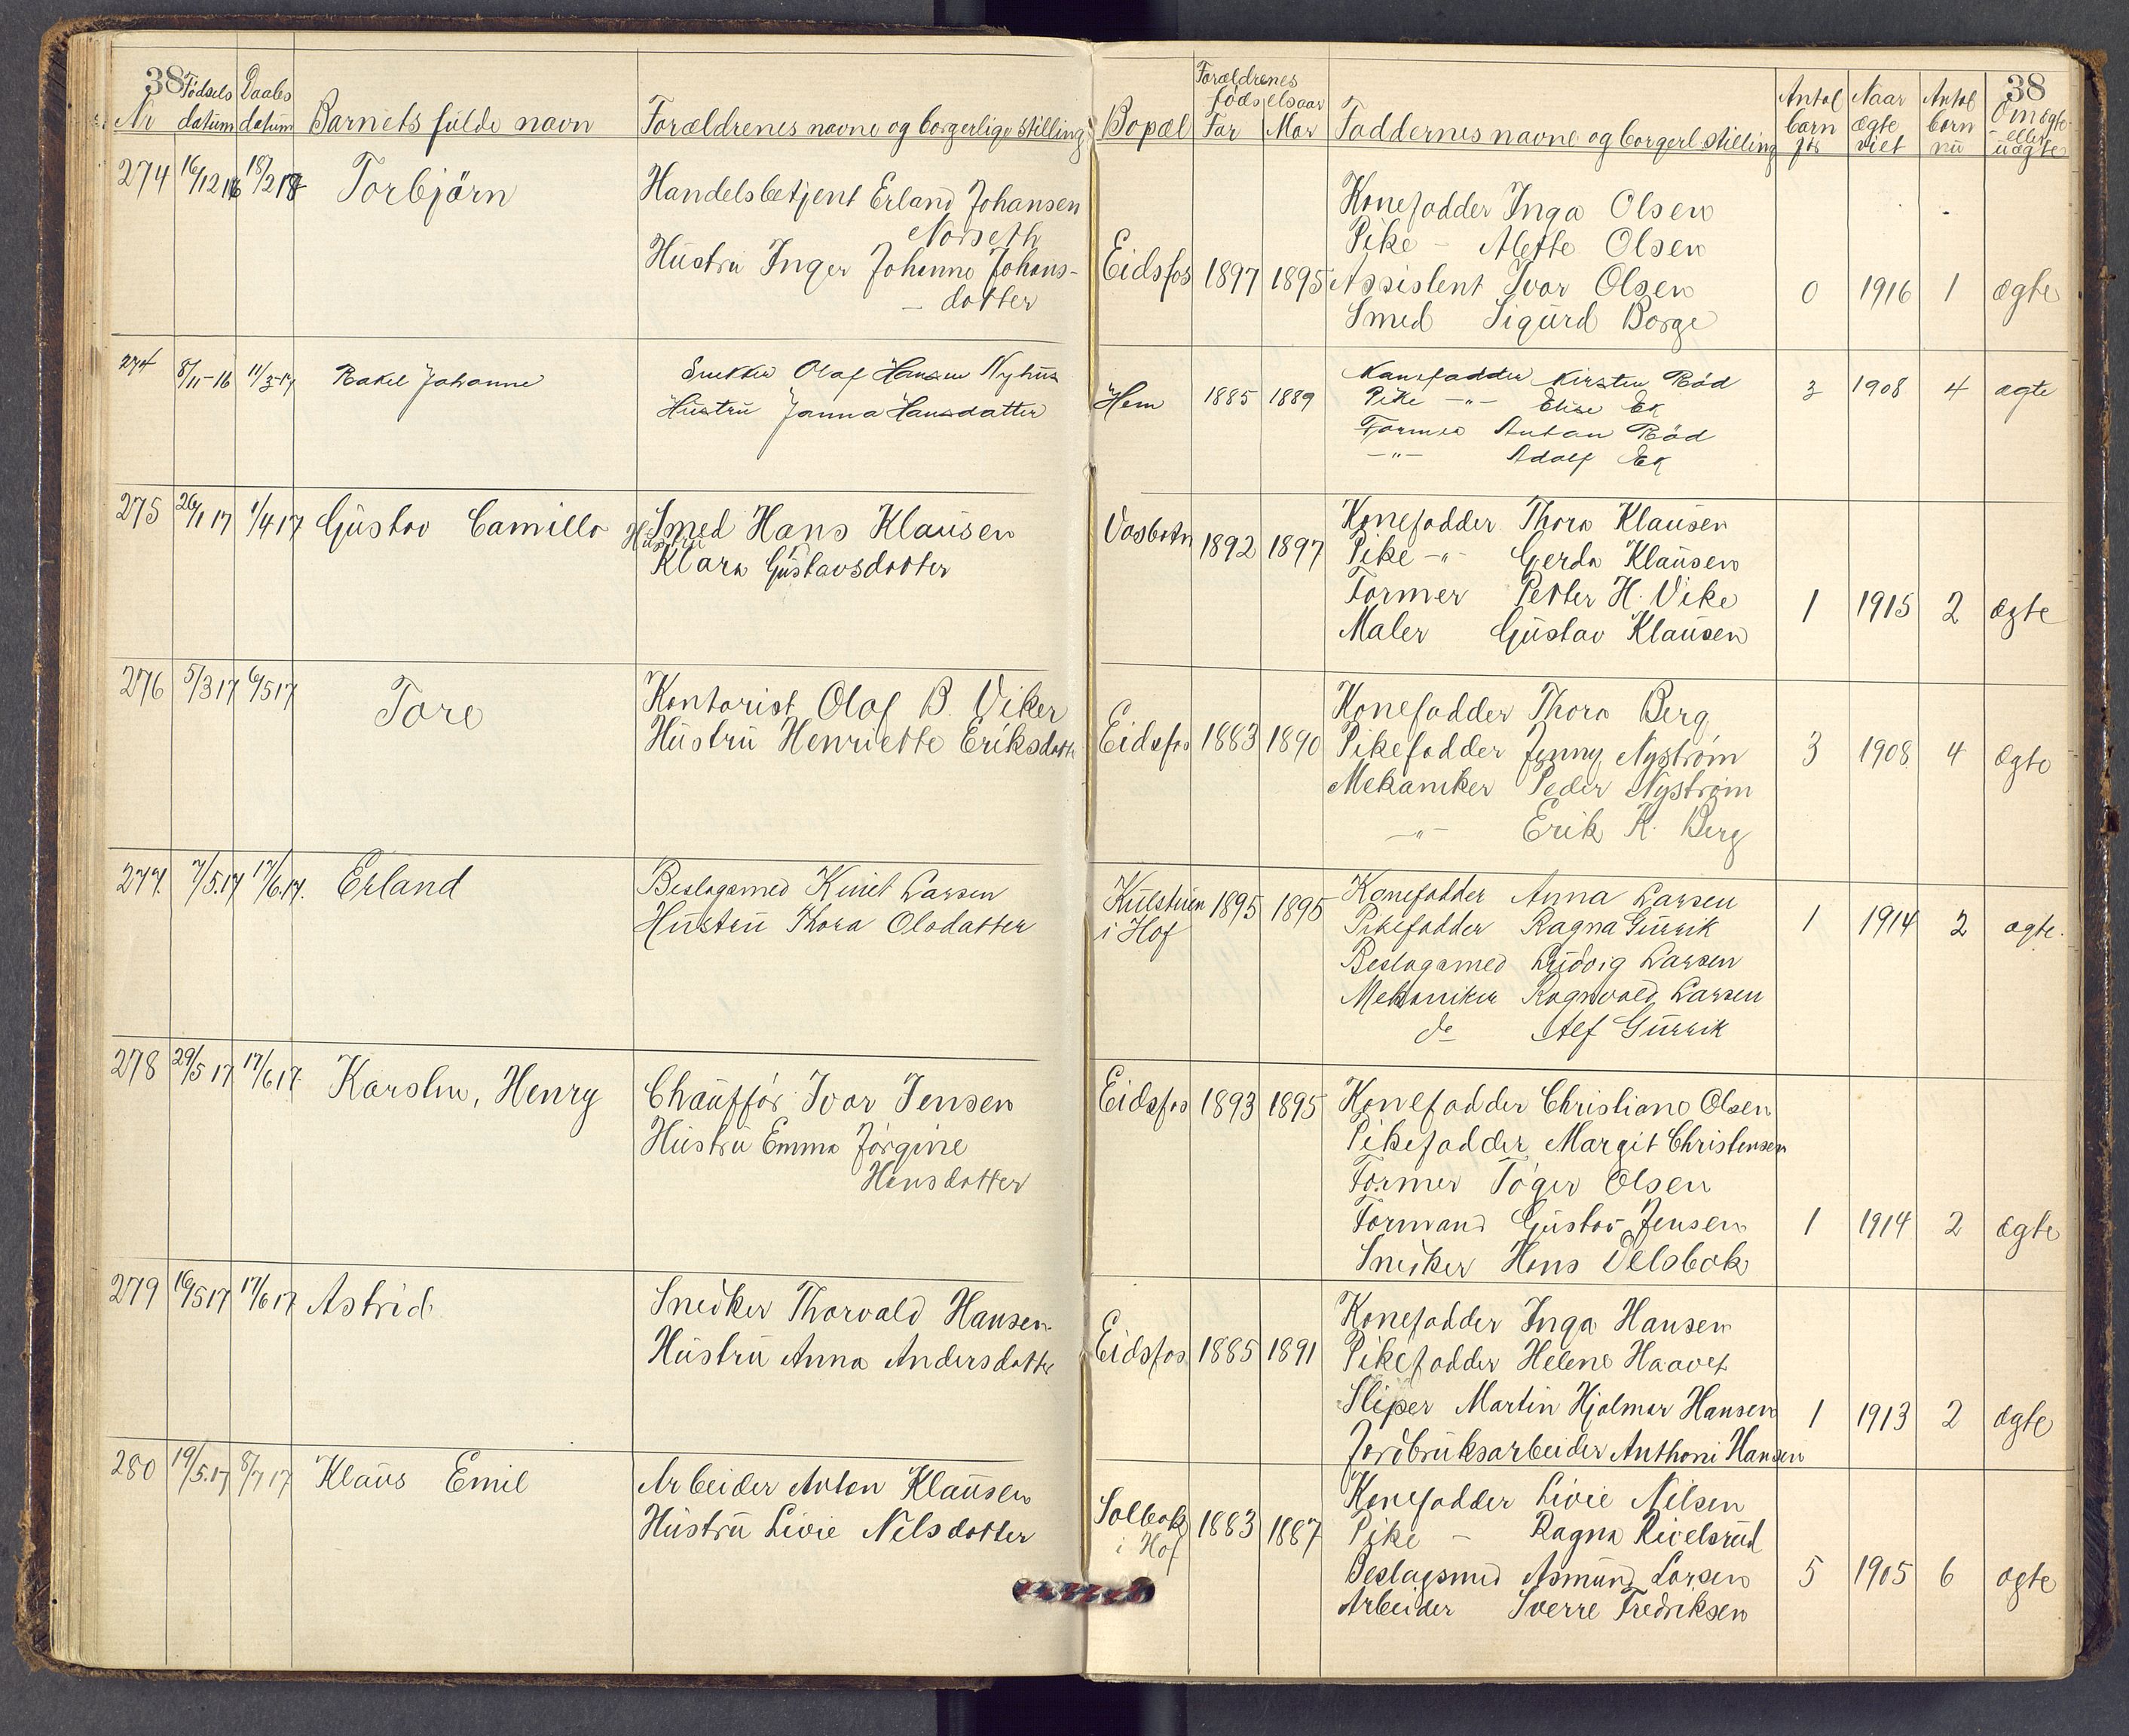 38
Nr Fødsels datum Daabs datum Barnets fulde navn Forældrenes navne og borgerlige stilling
274 16/12 16 18/2 17 Torbjörn Handelsbetjent Erland Johansen
Norseth
Hustru Inger Johanne Johans-
- datter
274 8/11-16 11/3-17 Rakel Johanne Snekker Olaf Hansen Nyhus
Hustru Janna Hansdatter
275 26/1 17 1/4 17 Gustav Camillo Smed Hans Klausen
Hustru Klara Gustavsdatter
276 5/3 17 6/5 17 Tore Kontorist Olaf B. Viker
Hustru Henriette Eriksdatt
277. 7/5.17 17/6.17. Erland Beslagsmed Knut Larsen
Hustru Thora Olsdatter
278 29/5 17 17/6 17. Karslen, Henry Chauffør Ivar Jensen
Hustru Emma Jørgine
Hansdatter
279 16/5 17 17/6 17 Astrid Snedker Thorvald Hansen
Hustru Anna Andersdatte
280 19/5.17 8/7 17 Klaus Emil Arbeider Anton Klausen
Hustru Livie Nilsdatter
38
Bopæl Forældrenes fødselsaar Far Mor Faddernes navne og borgerl. stilling Antal barn før Naar ægte viet Antal born nu Om ægte eller uægte
Konefadder Inga Olsen
Pike - Alette Olsen
Eidsfos 1897 1895 Assistent Ivar Olsen 0 1916 1 ægte
Smed Sigurd Borge
Hem 1885 1889 Konefadder Kirsten Rød 3 1908 4 ægte
Pike -"- Elise Ek
Former Anton Rød
-"- Adolf Ek
Vasbotn 1892 1897 Konefadder Thora Klausen
Pike -"- Gerda Klausen
Former Petter H. Vike 1 1915 2 ægte
Maler Gustav Klausen
Konefadder Thora Berg
Eidsfos 1883 1890 Pikefadder Jenny Nystrøm 3 1908 4 ægte
Mekaniker Peder Nystrøm
-"- Erik K. Berg
Kulstuen 1895 1895 Konefadder Anna Larsen
i Hof Pikefadder Ragna Gurrik 1 1914 2 ægte.
Beslagsmed Ludvig Larsen
Mekaniker Ragnvald Larsen
do Alf Gurrik
Eidsfos 1893 1895 Konefadder Christiane Olsen
Pikefadder Margit Christensen
Former Tøger Olsen
Formand Gustav Jensen 1 1914 2 ægte
Snedker Hans Delsbak
Konefadder Inga Hansen
Eidsfos 1885 1891 Pikefadder Helene Haavet
Sliper Martin Hjalmar Hansen 1 1913 2 ægte
Jordbruksarbeider Anthoni Hansen
Konefadder Livie Nilsen
Solbak 1883 1887 Pike - Ragna Rivelsrud
i Hof
Beslagsmed Asmund Larsen 5 1905 6 ægte
Arbeider Sverre Fredriksen